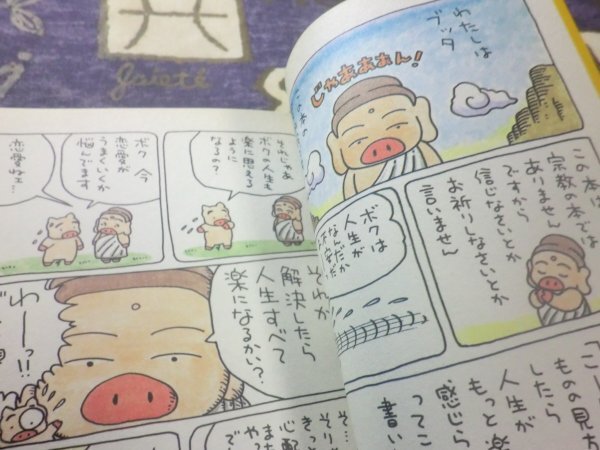 gaieté
わたしは
ブッタ
じゃあぁぁん！
この本は
宗教の本では
ありません
ですから
信じなさいとか
お祈りしなさいとか
言いません
ボクは
人生が
なんだか
ものの見方
したら
人生が
もっと楽
感じら
ってこ
書い
それじゃあ
ボクの人生も
楽に思える
ように
なるの？
ボク 今
恋愛が
うまくいくか
悩んでます
恋愛ねェ…
それが
解決したら
人生すべて
楽になるかい？
わーっ!!
そ…
そり
きっと
心配